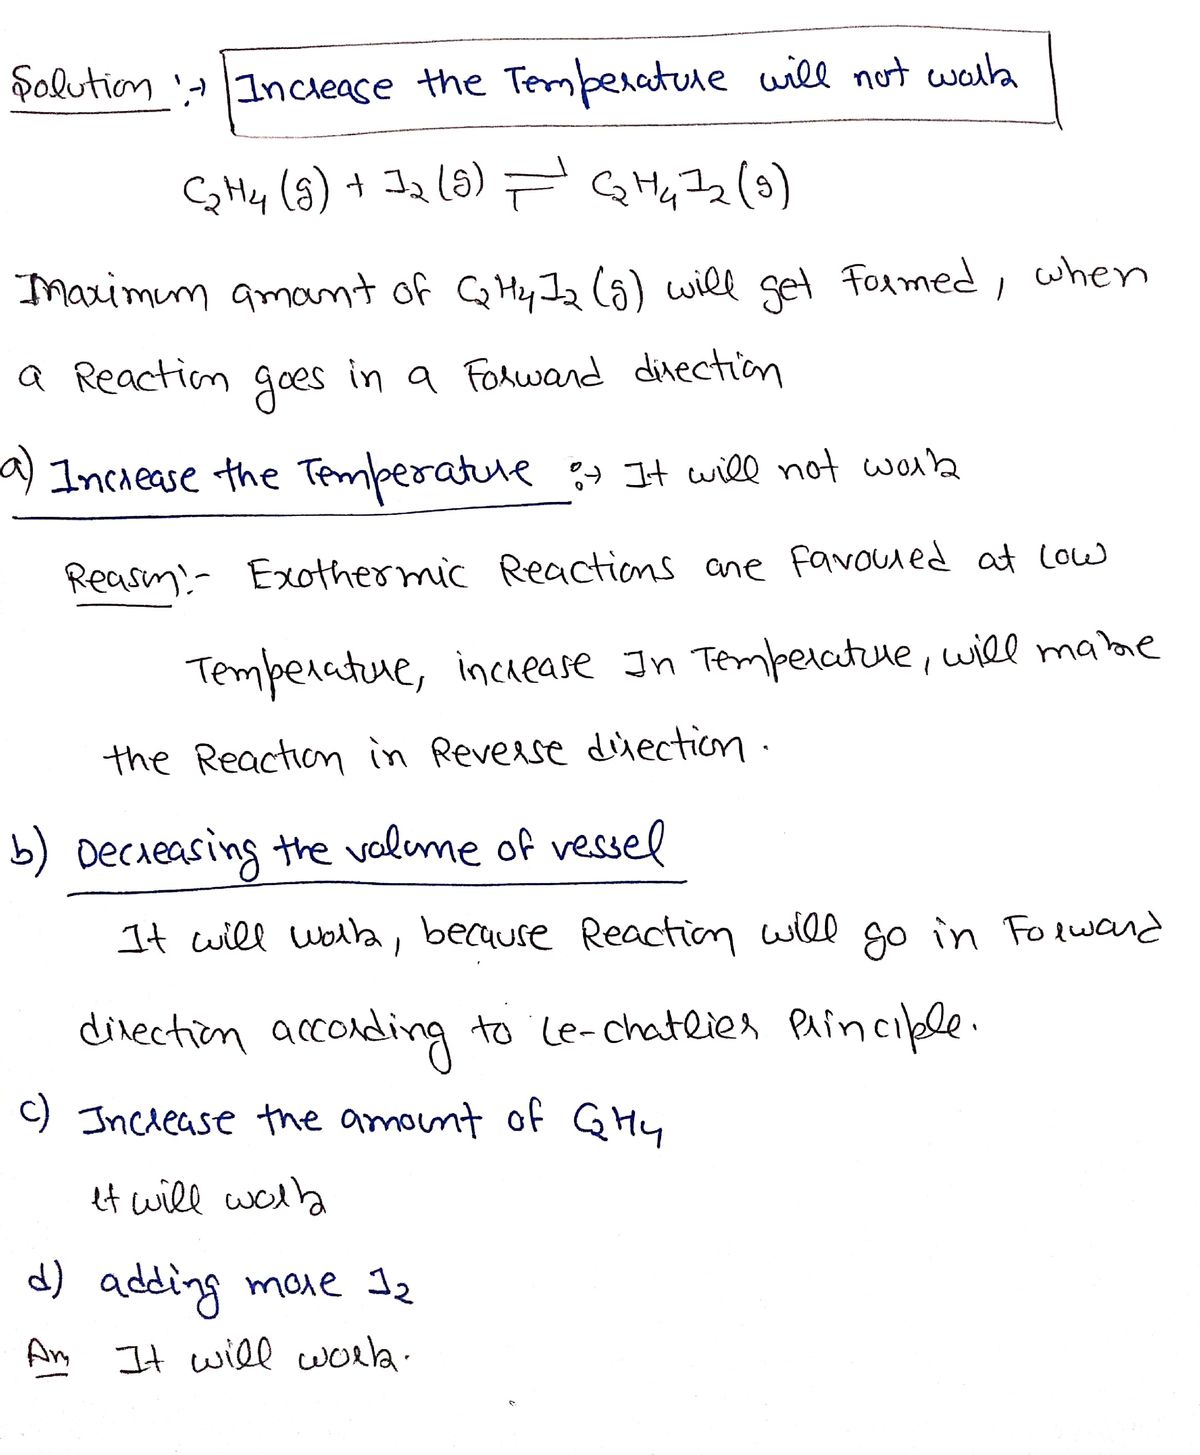 Solution :→ Increase the Temperature will not work
C2H4 (g) + I2 (g) ⇌ C2H4I2 (g)
Maximum amount of C2H4I2 (g) will get formed, when
a Reaction goes in a forward direction
a) Increase the Temperature :→ It will not work
Reason:- Exothermic Reactions are favoured at low
Temperature, increase In Temperature, will make
the Reaction in Reverse direction.
b) Decreasing the volume of vessel
It will work, because Reaction will go in Forward
direction according to Le-chatlier Principle.
c) Increase the amount of C2H4
it will work
d) adding more I2
Ans It will work.